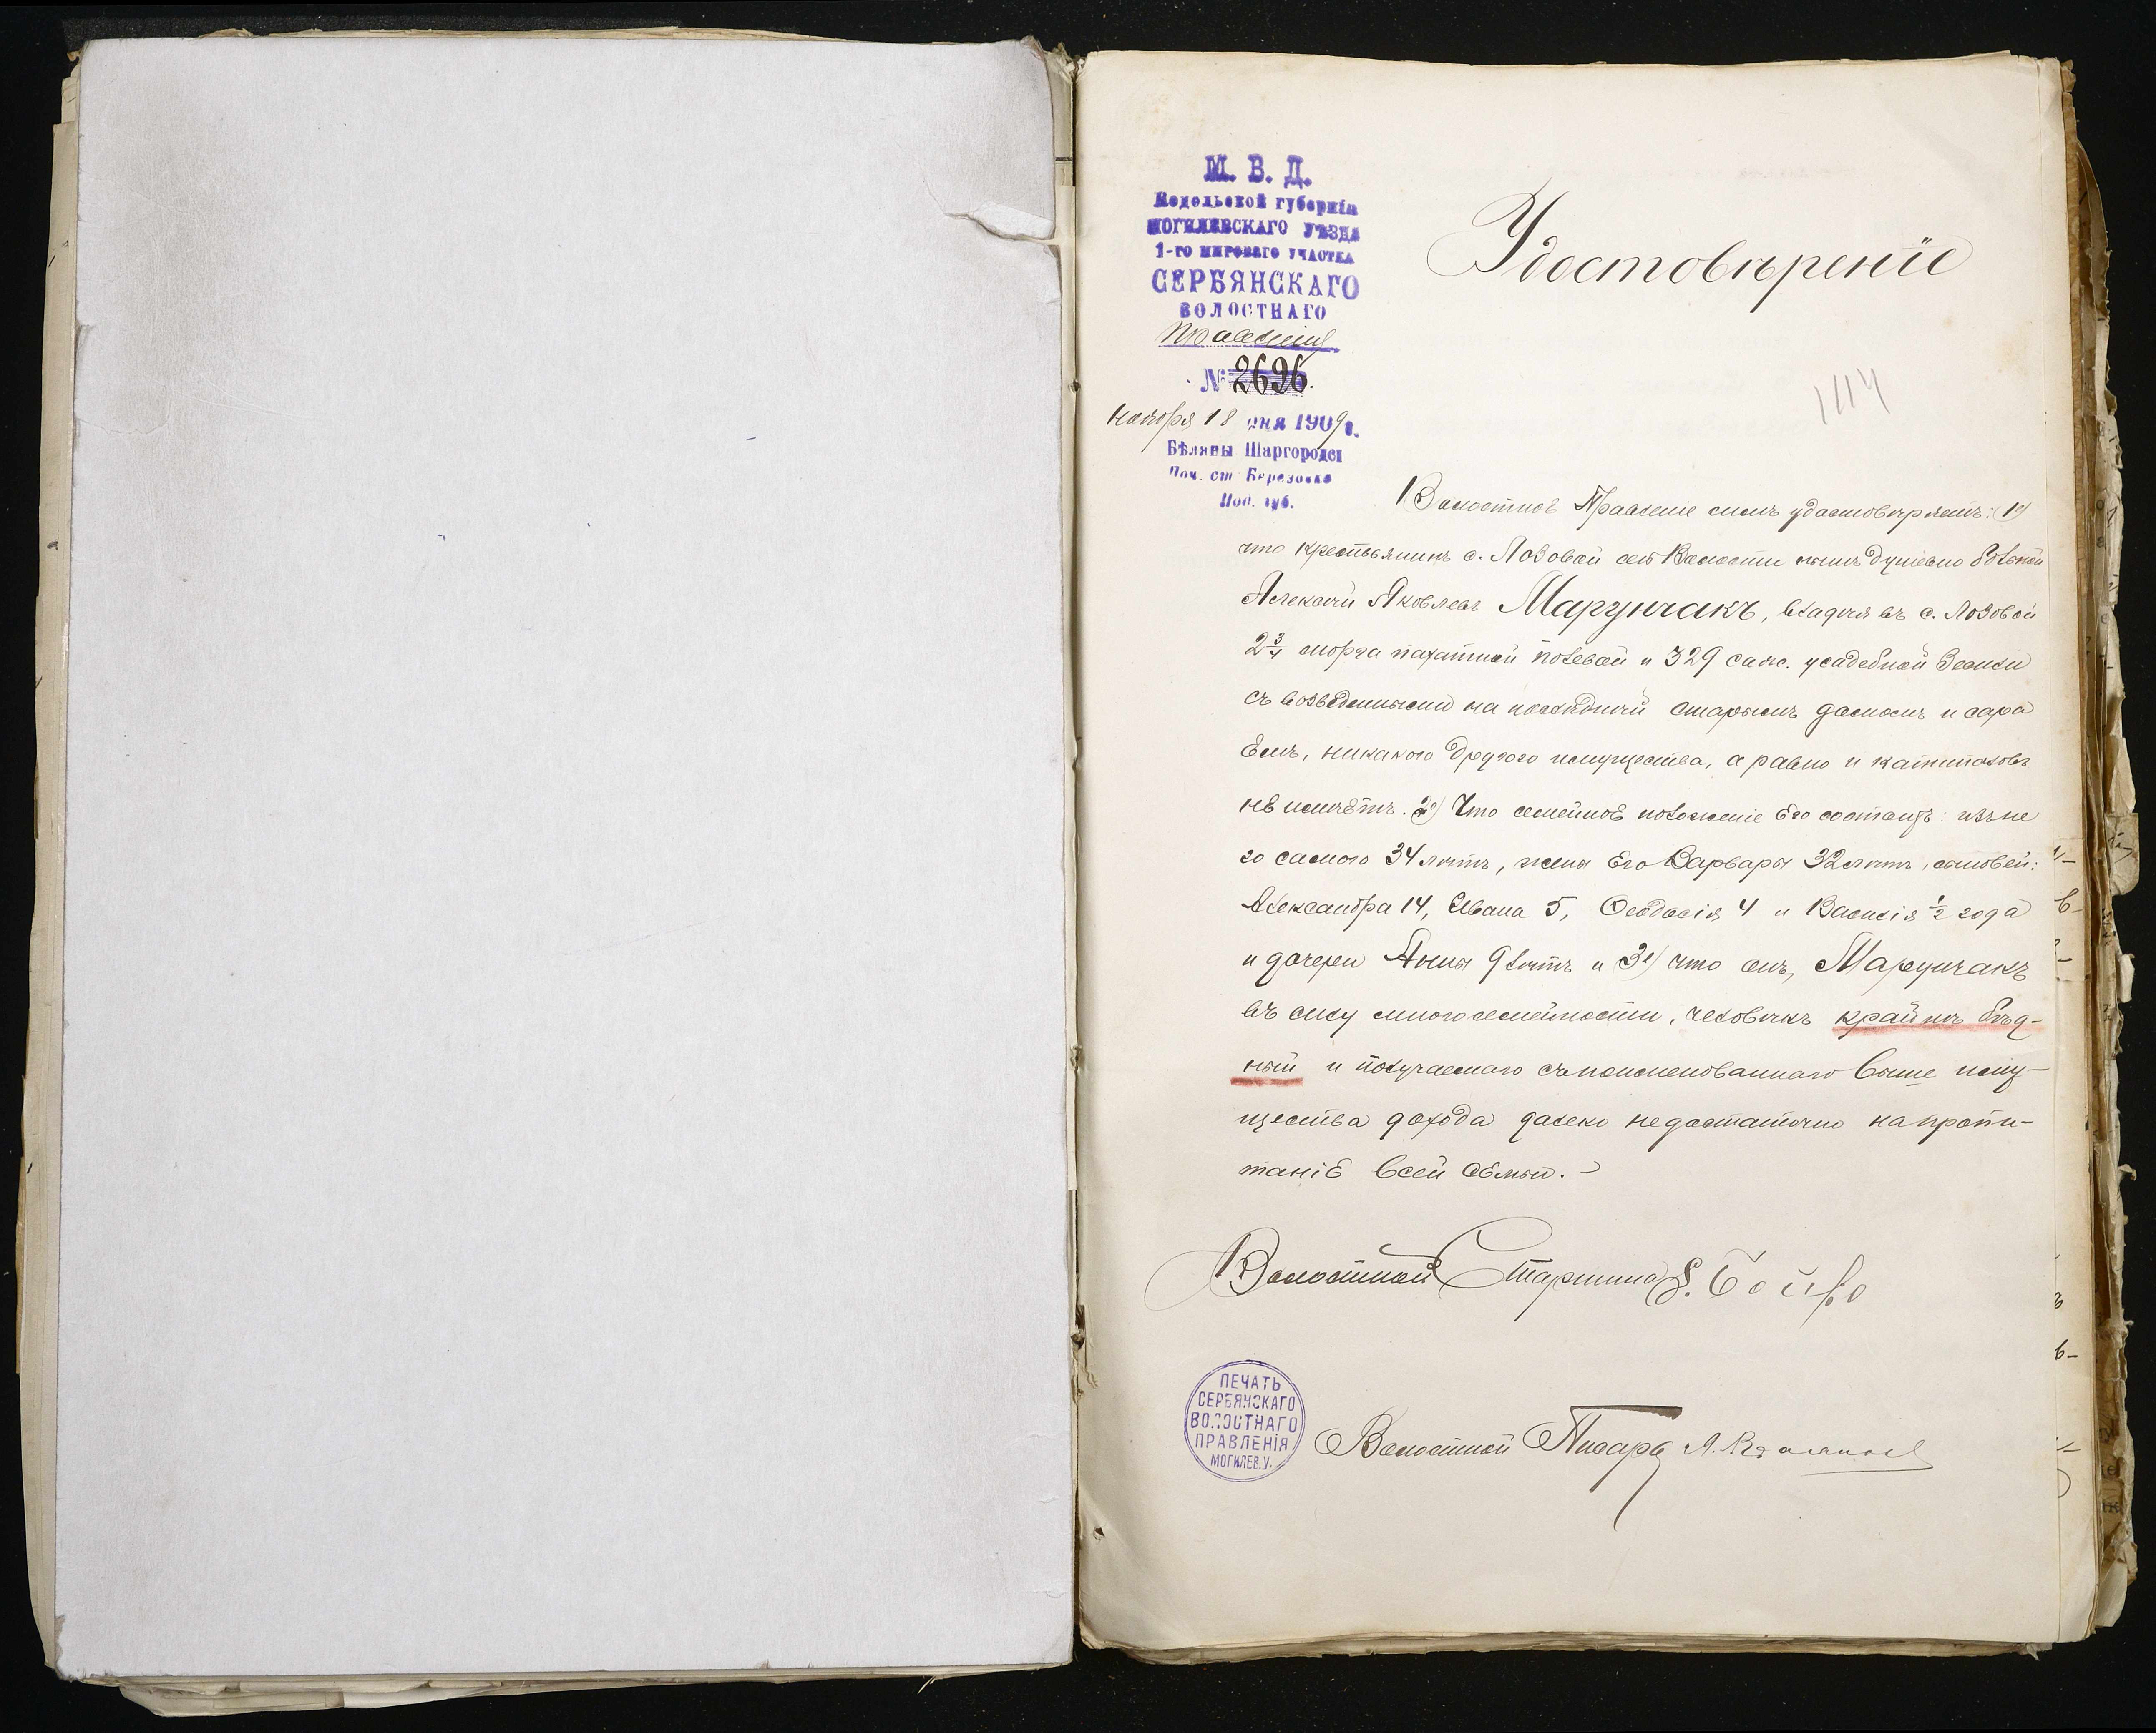 М. В. Д.
Подольской губернiи
МОГИЛЕВСКАГО УѢЗДА
1-го МИРОВАГО УЧАСТКА
СЕРБЯНСКАГО
ВОЛОСТНАГО
Правленiя
№ 2696.
Ноября 18 дня 1909 г.
Поч. ст. Березовка
Под. губ.
Удостовѣренiе
1114
Волостное Правленiе симъ удостовѣряетъ: 1е)
что крестьянинъ с. Лозовой сей Волости нынѣ душевно больной
Алексѣй Яковлевъ Марунчакъ, владѣя въ с. Лозовой
2 3/4 морга пахатной полевой и 329 саж. усадебной земли
съ возведенными на послѣдней старымъ домомъ и сара
емъ, никакого другого имущества, а равно и капиталовъ
не имѣетъ. 2е) Что семейное положенiе его состоитъ: изъ не
го самого 34 лѣтъ, жены его Варвары 32 лѣтъ, сыновей:
Александра 14, Ивана 5, Ѳеодосiя 4 и Василiя 1/2 года
и дочери Анны 9 лѣтъ и 3е) что онъ, Марунчакъ
въ силу многосемейности, человѣкъ крайнѣ бѣд-
ный и получаемаго съ поименованнаго выше иму-
щества дохода далеко недостаточно на пропи-
танiе всей семьи.
Волостной Старшина
ПЕЧАТЬ
СЕРБЯНСКАГО
ВОЛОСТНАГО
ПРАВЛЕНIЯ
МОГИЛЕВ.У.
Волостной Писарь